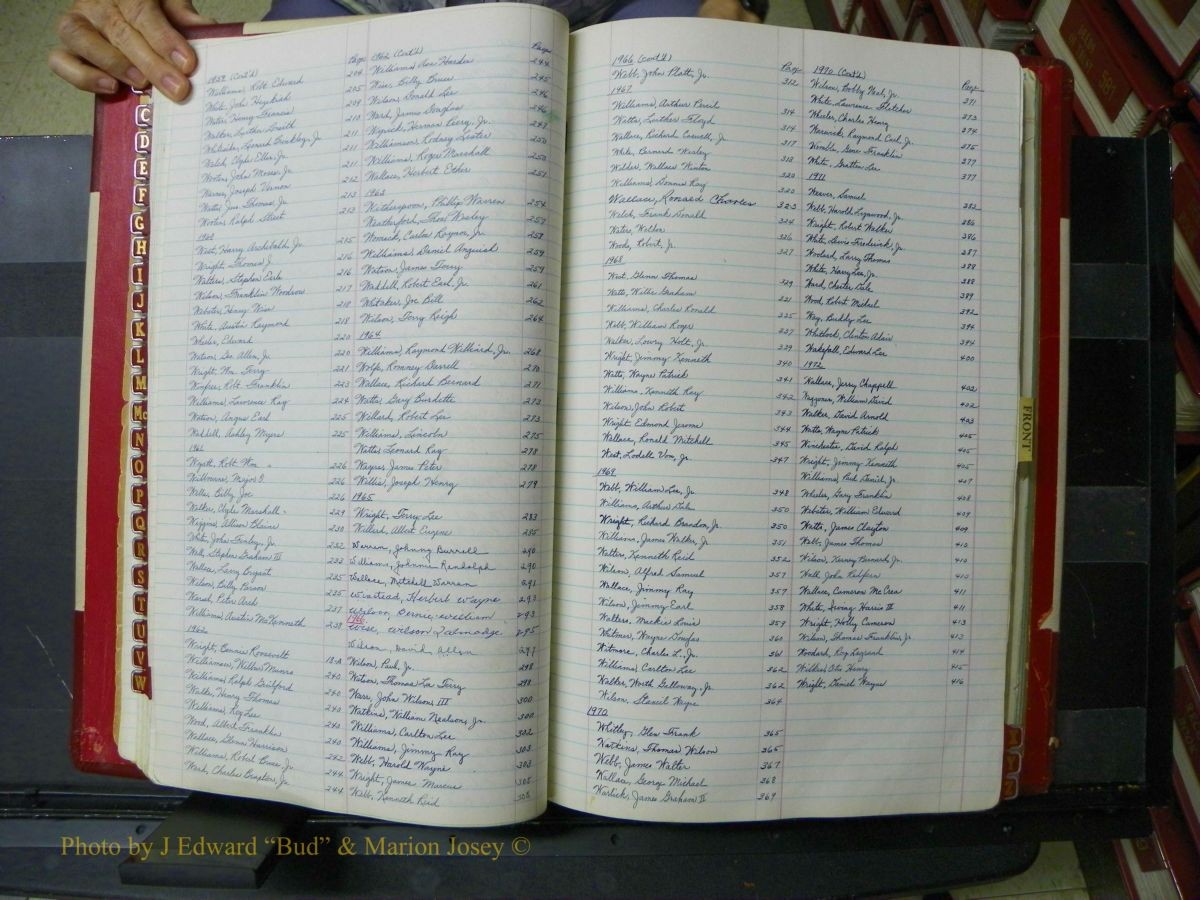 1959 (Cont'd)
Williams, Robt Edward 204
White, John Hezekiah 205
Waters, Henry Francis 209
Walker, Luther Smith 210
Whiteside, Leonard Brinkley, Jr. 211
Welch, Clyde Ellis, Jr. 211
Wooten, John Moses, Jr. 211
Warner, Joseph Vernon 212
Watts, Jas. Thomas, Jr. 213
Wooten, Ralph Street 213
1960
West, Harry Archibald, Jr. 215
Wright, Thomas J. 216
Walters, Stephen Earle 216
Wilson, Franklin Woodrow 217
Webster, Henry Wise 218
White, Austin Raymond 218
Wheeler, Edward 220
Watson, Geo. Allen, Jr. 220
Wright, Wm. Terry 221
Winfree, Robt. Franklin 223
Williams, Lawrence Ray 224
Watson, Angus Earl 225
Waddell, Ashley Myers 225
1961
Wyatt, Robt Wm. 226
Wilbourne, Major I. 226
Weller, Billy Joe 226
Walker, Clyde Marshall 229
Wiggins, Allison Blaine 230
White, John Finley, Jr. 232
Wall, Stephen Graham III 232
Wallace, Larry Bryant 235
Wilson, Billy Parson 235
Marsh, Peter Arch 237
Williams, Austin McKenneth 238
1962
Wright, Bennie Roosevelt 13-A
Williamson, Wilbur Munro 240
Williams, Ralph Guilford 240
Walker, Henry Thomas 240
Williams, Roy Lee 240
Wood, Albert Franklin 240
Wallace, Glenn Harrison 242
Williams, Robert Bruce, Jr. 244
Ward, Charles Braxton, Jr. 244
Page 1962 (Cont'd) Page
Williams, Ace Harden 244
Wise, Billy Bruce 245
Wilson, Donald Lee 246
Ward, James Douglas 246
Warrick, Herman Perry, Jr. 247
Williamson, Rodney Lester 250
Williams, Roger Marshall 250
Wallace, Herbert Ethon 251
1963
Witherspoon, Phillip Warren 254
Weatherford, Thos. Wesley 257
Womack, Carlon Raynor, Jr. 257
Williams, Daniel Anguish 259
Watson, James Terry 259
Waddell, Robert Earl, Jr. 261
Whitaker, Joe Bill 262
Wilson, Terry Keigh 264
1964
Williams, Raymond Williard, Jr. 268
Wolfe, Romney Darrell 270
Wallace, Richard Bernard 271
Watts, Gary Burdette 273
Willard, Robert Lee 273
Williams, Lincoln 275
Watts, Leonard Ray 278
Wayne, James Peter 278
Willis, Joseph Henry 279
1965
Wright, Terry Lee 283
Willard, Albert Eugene 285
Warren, Johnny Burrell 290
Williams, Johnnie Randolph 290
Wallace, Mitchell Warren 291
Winstead, Herbert Wayne 293
Wilson, Bernie William 293
1966
Wise, Wilson Talmadge 295
Wilson, David Allen 297
Wilson, Paul, Jr. 298
Wilson, Thomas La Terry 298
Ware, John Wilson III 300
Watkins, William Nealson, Jr. 300
Williams, Carlton Lee 302
Williams, Jimmy Ray 303
Webb, Harold Wayne 303
Wright, James Marcus 305
Webb, Kenneth Reid 305
1966 (Cont'd) Page
Webb, John Platt, Jr. 312
1967
Williams, Arthur Percil 314
Watts, Luther Floyd 314
Wallace, Richard Caswell, Jr. 317
White, Bernard Wesley 318
Wilder, Wallace Winton 320
Williams, Donnie Ray 320
Wallace, Ronald Charles 323
Welch, Frank Donald 324
Waters, Weldon 326
Woods, Robert, Jr. 327
1968
West, Glenn Thomas 329
Watts, Willie Graham 331
Williams, Charles Ronald 335
Webb, William Roger 337
Walker, Lowry Holt, Jr. 339
Wright, Jimmy Kenneth 340
Watts, Wayne Patrick 341
Williams, Kenneth Ray 342
Wilson, John Robert 343
Wright, Edmond Jerome 344
Wallace, Ronald Mitchell 345
West, Lodell Von, Jr. 347
1969
Webb, William Lee, Jr. 348
Williams, Arthur Dale 350
Wright, Richard Brandon, Jr. 350
Williams, James Walker, Jr. 351
Walters, Kenneth Reid 352
Wilson, Alfred Samuel 357
Wallace, Jimmy Ray 357
Wilson, Jimmy Earl 358
Walters, Mackie Louie 359
Whitmer, Wayne Douglas 360
Witmore, Charles L., Jr. 361
Williams, Carlton Lee 362
Walker, Worth Galloway, Jr. 362
Wilson, Stancil Wayne 364
1970
Whitley, Glen Frank 365
Watkins, Thomas Wilson 365
Webb, James Walter 367
Wallace, George Michael 368
Warlick, James Graham II 369
1970 (Cont'd) Page
Wilson, Bobby Neal, Jr. 371
White, Lawrence Fletcher 373
Wheeler, Charles Henry 374
Warwick, Raymond Carl, Jr. 375
Womble, Gene Franklin 377
White, Grattan Lee 377
1971
Weaver, Samuel 382
Webb, Harold Lynwood, Jr. 386
Wright, Robert Walker 386
White, Lewis Frederick, Jr. 387
Woodard, Larry Thomas 388
White, Harry Lee, Jr. 388
Ward, Chester Dale 389
Wood, Robert Michael 392
Way, Buddy Lee 394
Whitlock, Clinton Adair 394
Wakefall, Edward Lee 400
1972
Wallace, Jerry Chappell 402
Waggoner, William David 402
Walker, David Arnold 403
Watts, Wayne Patrick 405
Winchester, David Ralph 405
Wright, Jimmy Kenneth 405
Williams, Paul Daniel, Jr. 407
Wheeler, Gary Franklin 408
Webster, William Edward 409
Watts, James Clayton 409
Webb, James Thomas 410
Wilson, Harvey Bernard, Jr. 410
Wall, John Redfern 410
Wallace, Cameron McCrea 411
White, Irving Harris II 411
Wright, Holly Cameron 413
Wilson, Thomas Franklin, Jr. 413
Woodard, Roy Legrand 414
Wilkins, Otis Henry 415
Wright, Daniel Wayne 416
C
D
E
F
G
H
I
J
K
L
M
Mc
N
O
P
Q
R
S
T
U
V
W
FRONT
Y
Z
Photo by J Edward “Bud” & Marion Josey ©